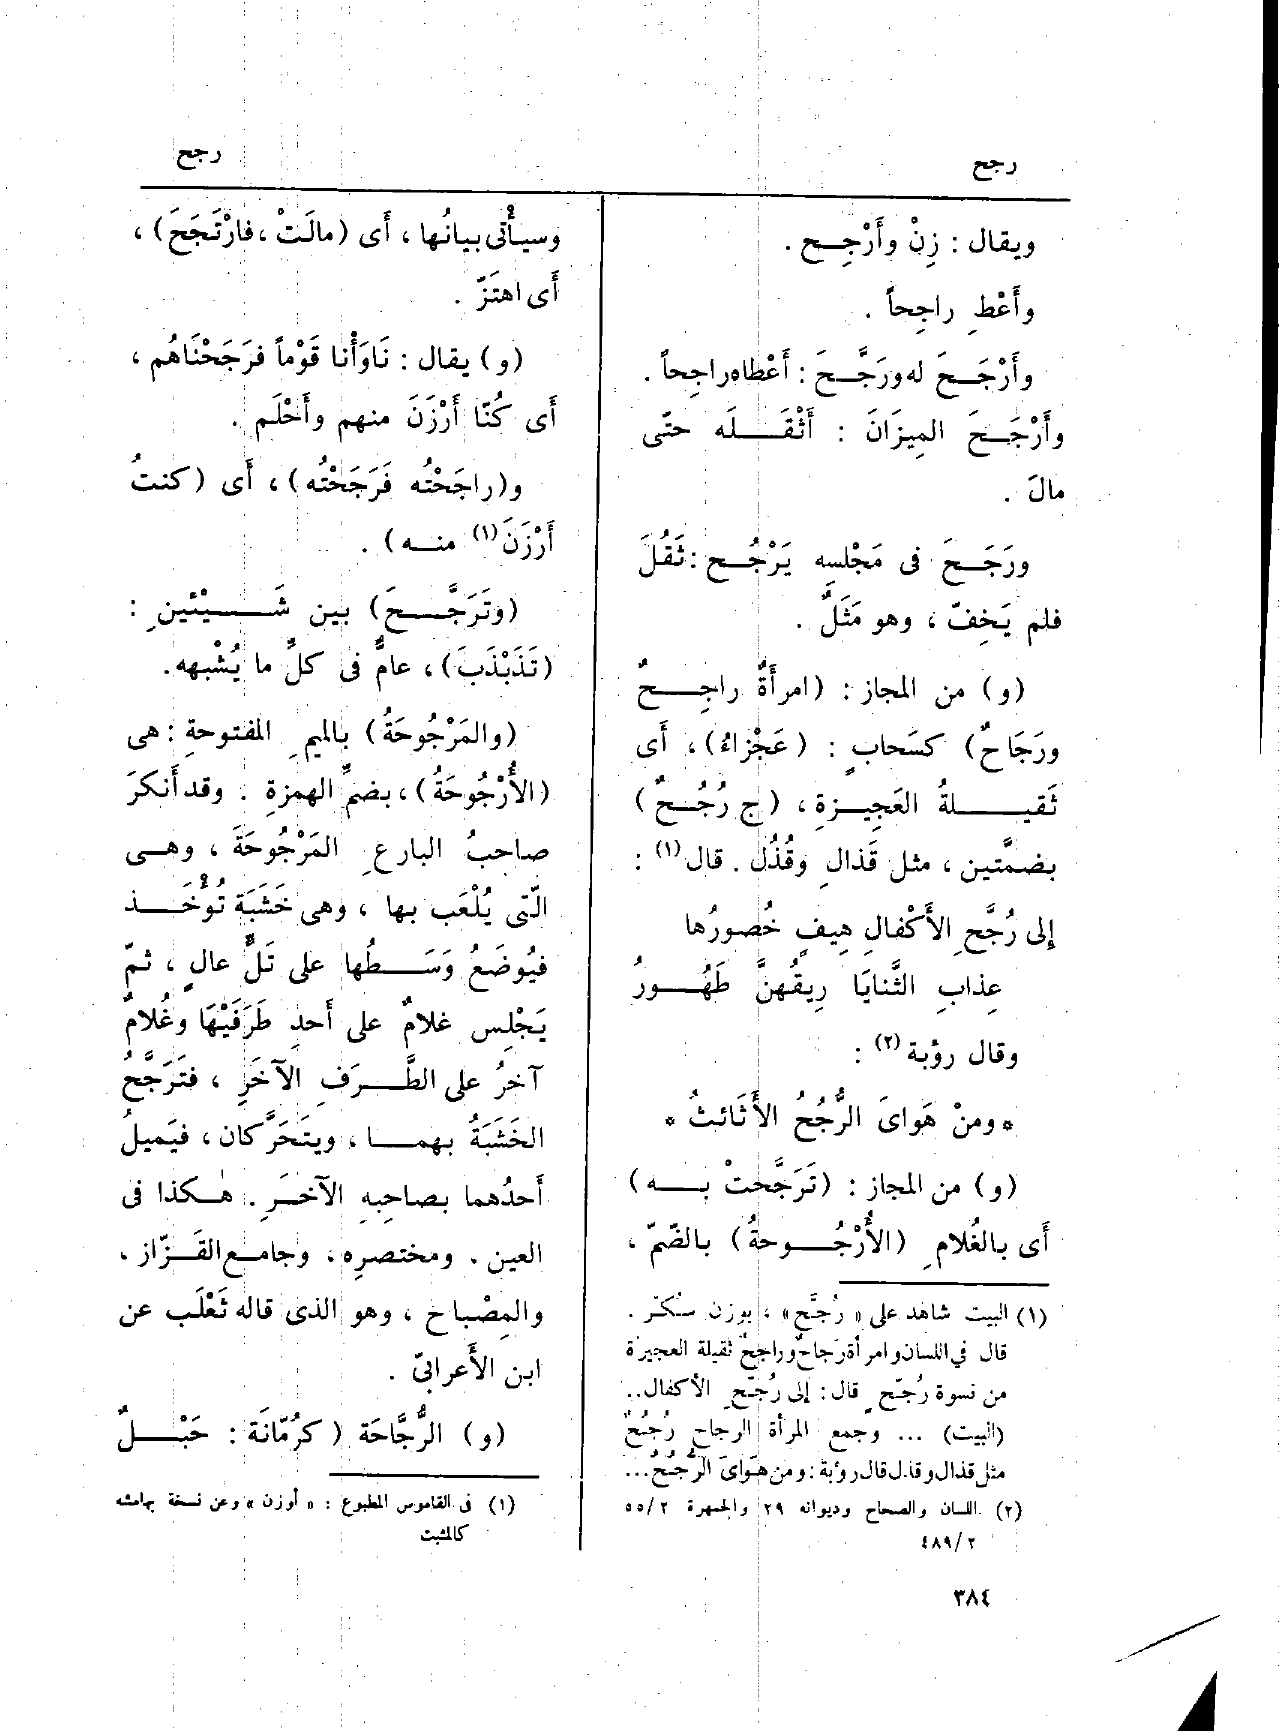 رجح
رجح
ويقال : زِنْ وأَرْجِح .
وأَعْطِ راجِحاً .
وأَرْجَحَ له ورَجَّحَ : أَعْطاه راجِحاً .
وأَرْجَحَ المِيزَانَ : أَثْقَلَه حتّى
مالَ .
ورَجَحَ فى مَجْلسِه يَرْجُح : ثَقُلَ
فلم يَخِفّ ، وهو مَثَلٌ .
(و) من المجاز : (امرأَةٌ راجِحٌ
ورَجَاحٌ) كسَحابٍ : (عَجْزاءُ) ، أَى
ثَقيلةُ العَجِيزةِ ، (ج رُجُحٌ)
بضمَّتين ، مثل قَذالٍ وقُذُل . قال (١) :
إلى رُجَّحِ الأَكْفالِ هِيفٍ خُصورُها
عِذابِ الثَّنايَا رِيقُهنَّ طَهُورُ
وقال رؤبة (٢) :
* ومنْ هَوايَ الرُّجُحُ الأَثَائثُ *
(و) من المجاز : (تَرَجَّحتْ به)
أَى بالغُلامِ (الأُرْجُوحةُ) بالضّمّ ،
(١) البيت شاهد على « رُجَّح » ، بوزن سُكّر .
قال في اللسان وامرأة رَجاح وراجحٌ ثقيلة العجيزة
من نسوة رُجّح قال : إلى رُجّح الأكفال ..
(البيت) ... وجمع المرأة الرجاح رُجُحٌ
مثل قذال وقذل قال رؤبة : ومن هَوايَ الرُّجُحُ ...
(٢) اللسان والصحاح وديوانه ٢٩ والجمهرة ٥٥/٢
٤٨٩/٢
وسيأْتى بيانُها ، أَى (مالَتْ ، فارْتَجَحَ) ،
أَى اهتَزّ .
(و) يقال : نَاوَأْنا قَوْماً فرَجَحْنَاهُم ،
أَى كُنّا أَرْزَنَ منهم وأَحْلَم .
و (راجَحْتُه فَرَجَحْتُه) ، أَى (كنتُ
أَرْزَنَ (١) منه) .
(وتَرَجَّحَ) بين شَيْئَينِ :
(تَذَبْذَبَ) ، عامٌّ فى كلِّ ما يُشْبهه .
(والمَرْجُوحَةُ) بالميمِ المفتوحةِ : هى
(الأُرْجُوحَةُ) ، بضمِّ الهمزةِ . وقد أَنكرَ
صاحبُ البارعِ المَرْجُوحَةَ ، وهى
الّتى يُلْعَب بها ، وهى خَشَبَة تُؤْخَذ
فيُوضَعُ وَسَطُها على تَلٍّ عالٍ ، ثمّ
يَجْلِس غلامٌ على أَحدِ طَرَفَيْهَا وغُلامٌ
آخرُ على الطَّرَفِ الآخَرِ ، فتَرَجَّحُ
الخَشَبَةُ بهما ، ويتَحَرَّكان ، فيَمِيلُ
أَحدُهما بصاحِبِه الآخَرِ . هٰكذا فى
العين . ومختصرِه ، وجامع القَزّاز ،
والمِصْباح ، وهو الذى قاله ثَعْلَب عن
ابن الأَعرابىّ .
(و) الرُّجَّاحَة (كرُمّانَة : حَبْلٌ
(١) فى القاموس المطبوع : « أوزن » وعن نسخة بهامشه
كالمثبت
٣٨٤